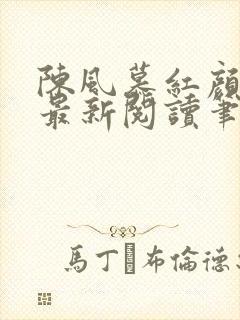 陳風慕紅顏
最新閱讀筆
馬丁布倫德